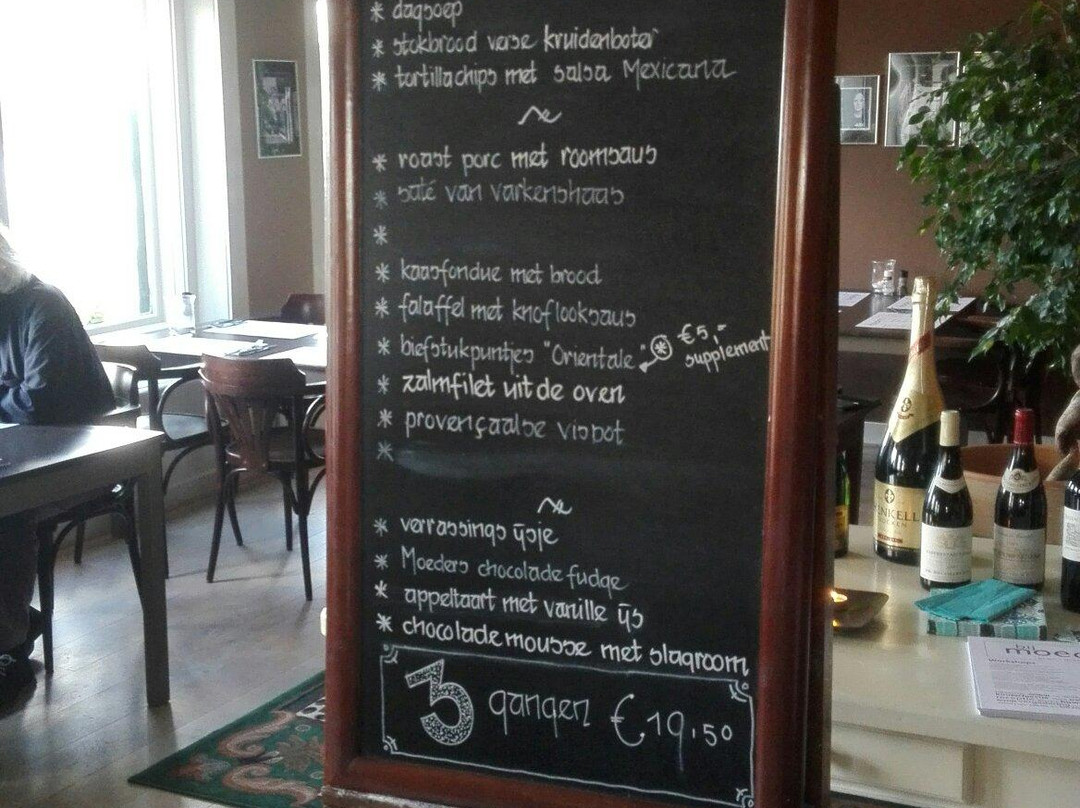 * dagsoep
* stokbrood verse kruidenboter
* tortillachips met salsa Mexicana
* roast porc met roomsaus
* saté van varkenshaas
*
* kaasfondue met brood
* falaffel met knoflooksaus
* biefstukpuntjes "Orientale" * €5,- supplement
* zalmfilet uit de oven
* provençaalse vispot
*
* verrassings ijsje
* Moeders chocolade fudge
* appeltaart met vanille ijs
* chocolade mousse met slagroom
3 gangen €19,50
moed